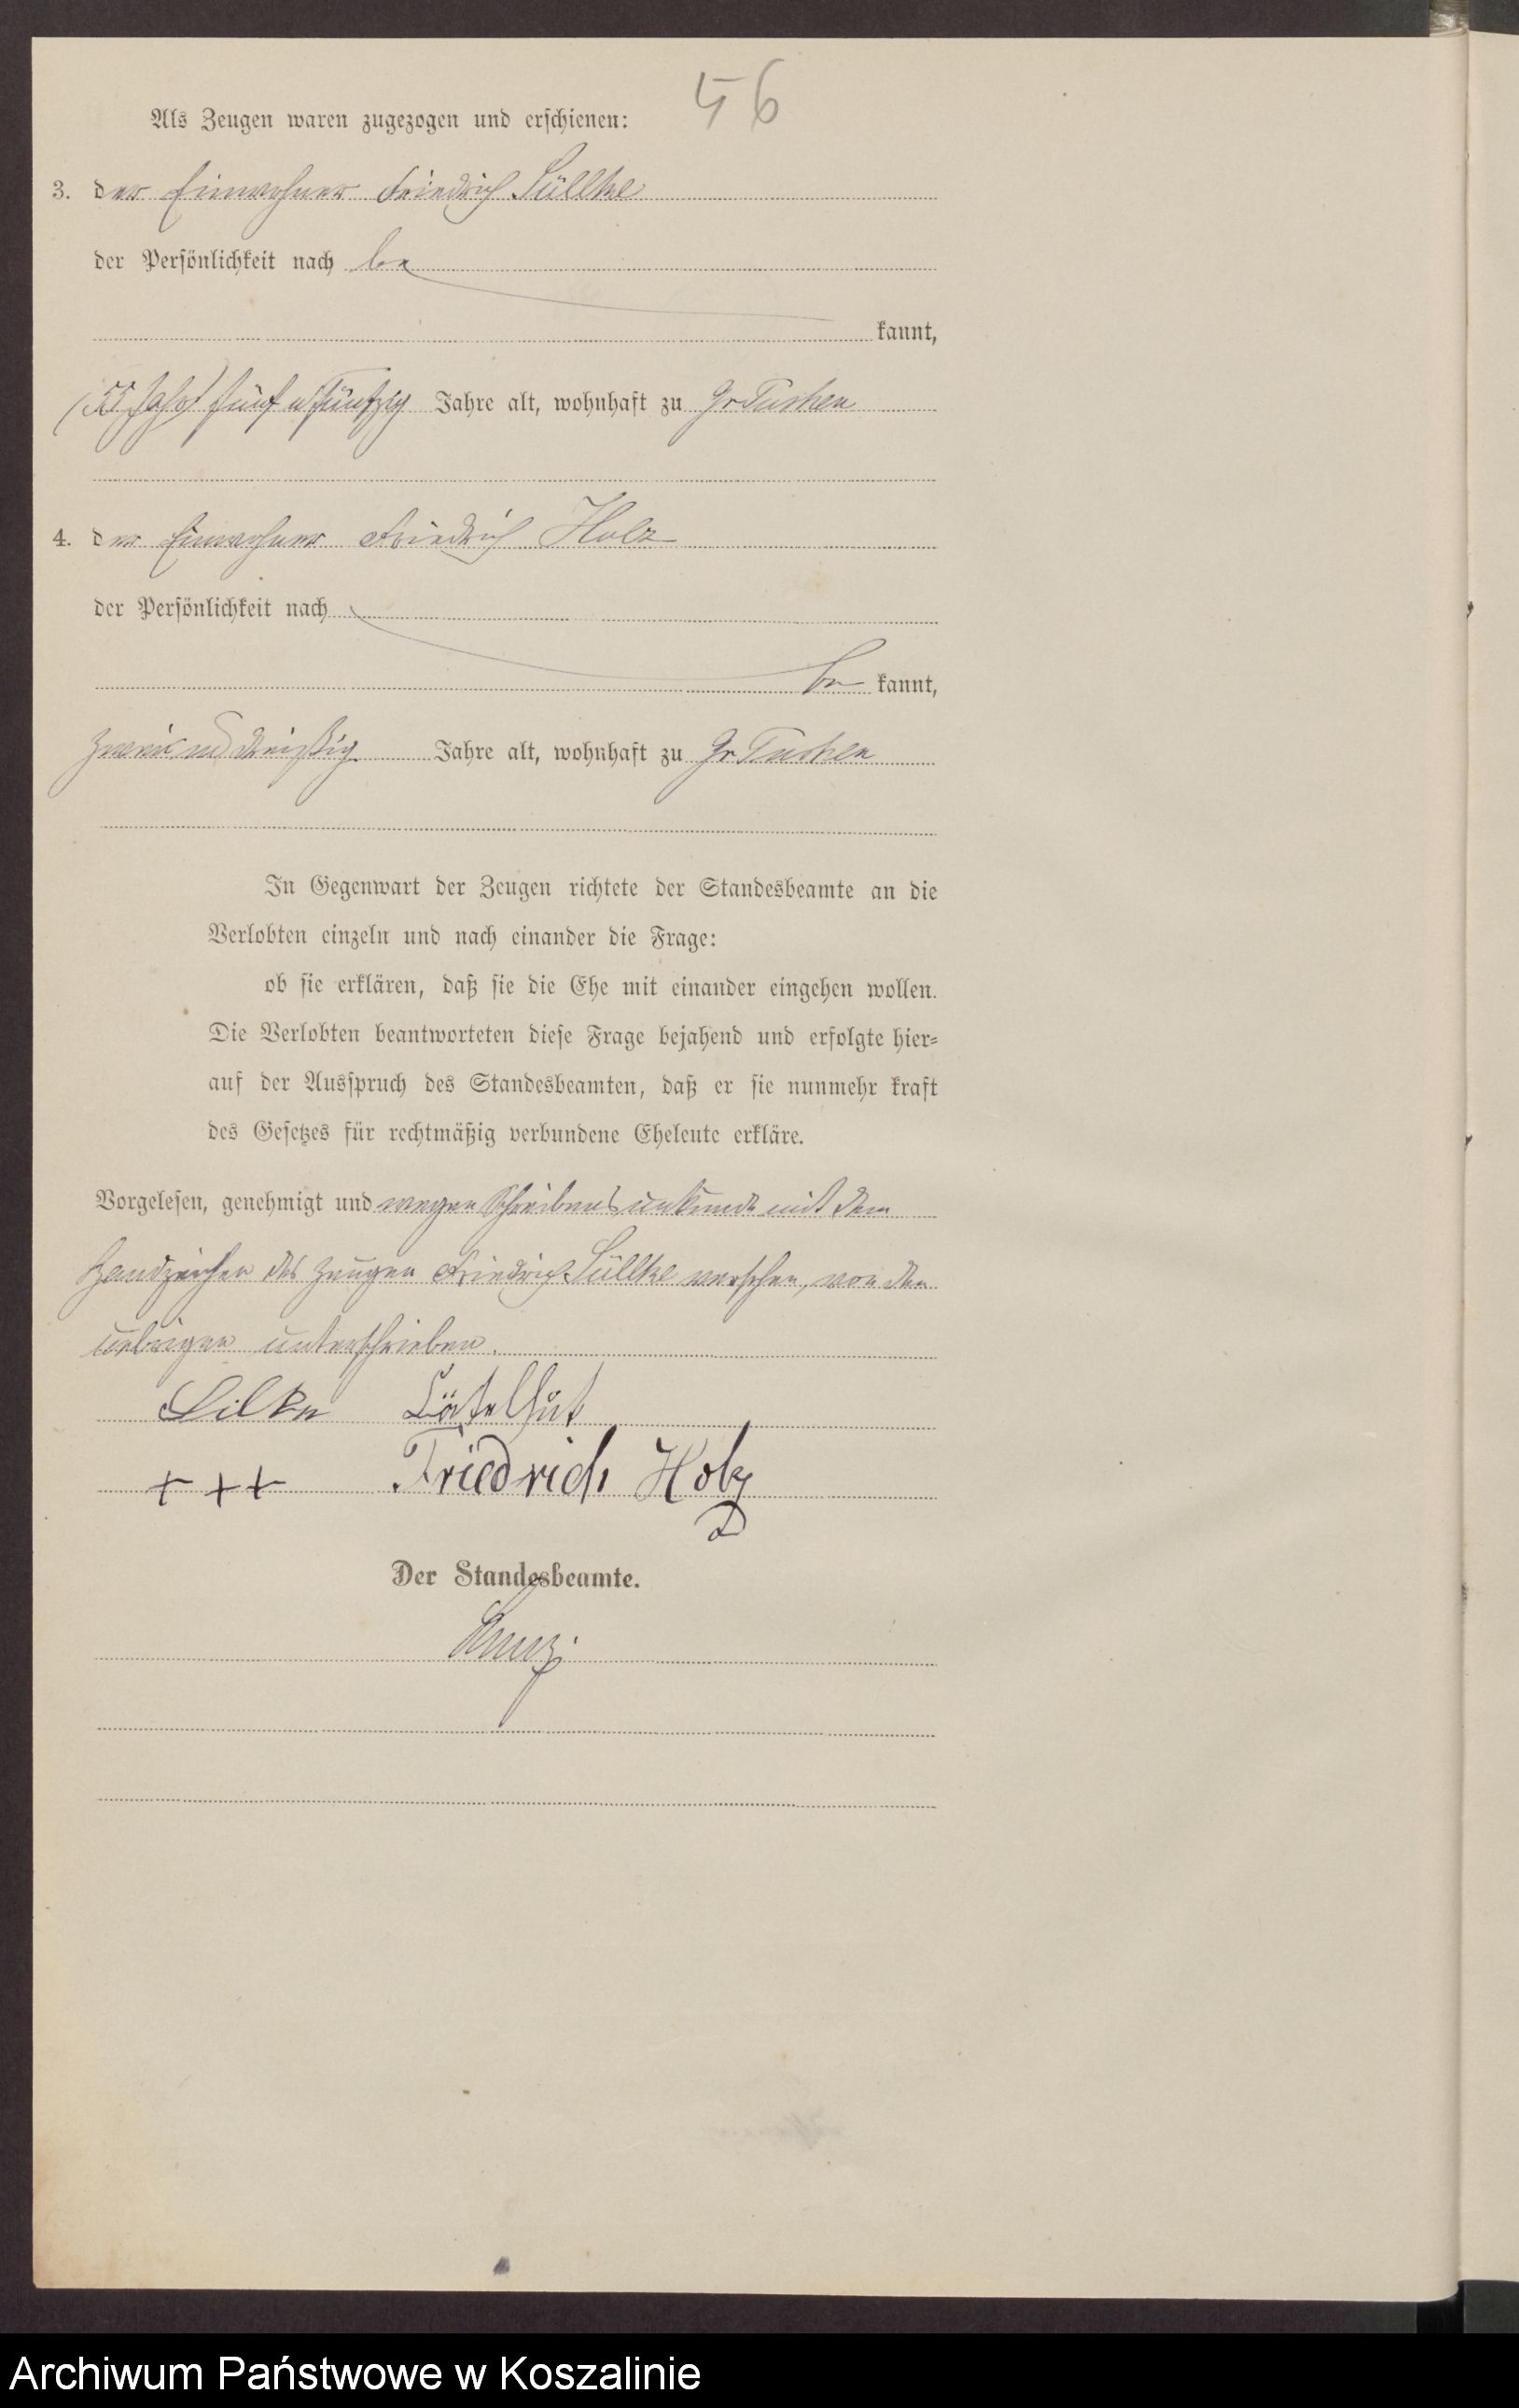 56
Als Zeugen waren zugezogen und erschienen:
3. der Einwohner Friedrich Süllke
der Persönlichkeit nach be
kannt,
(55 Jahr) fünf u fünfzig Jahre alt, wohnhaft zu Gr Tuchen
4. der Einwohner Friedrich Holz
der Persönlichkeit nach
be kannt,
zwei und dreißig Jahre alt, wohnhaft zu Gr. Tuchen
In Gegenwart der Zeugen richtete der Standesbeamte an die
Verlobten einzeln und nach einander die Frage:
ob sie erklären, daß sie die Ehe mit einander eingehen wollen.
Die Verlobten beantworteten diese Frage bejahend und erfolgte hier-
auf der Ausspruch des Standesbeamten, daß er sie nunmehr kraft
des Gesetzes für rechtmäßig verbundene Eheleute erkläre.
Vorgelesen, genehmigt und wegen Schreibens unkunde mit dem
Handzeichen des Zeugen Friedrich Süllke versehen, von den
uebrigen unterschrieben.
+++ Friedrich Holz
Der Standesbeamte.
Archiwum Państwowe w Koszalinie